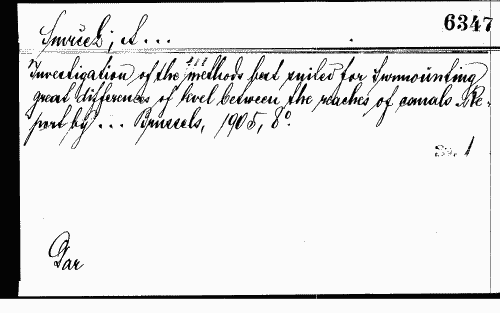 6347
Smrček, A...
"Investigation of the methods best suited for surmounting
great differences of level between the reaches of canals. Re-
port by ... Brussels, 1905, 8°.
39. 1
Dar